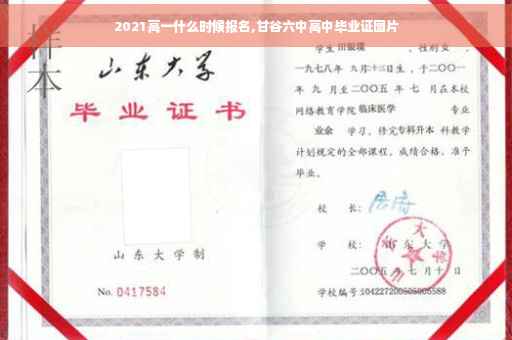 2021高一什么时候报名,甘谷六中高中毕业证图片
样
本
山东大学
毕业证书
山东大学制
No. 0417584
学生 田银環 ,性别 女 ,
一九七八年 九月十三日生,于二〇〇一
年 九 月至二〇〇五 年 七 月在本校
网络教育学院 临床医学 专业
业余 学习,修完专科升本 科教学
计划规定的全部课程,成绩合格,准予
毕业。
校 长:
学 校: 山东大学
二〇〇五年 七 月十 日
学校编号:104227200505005588